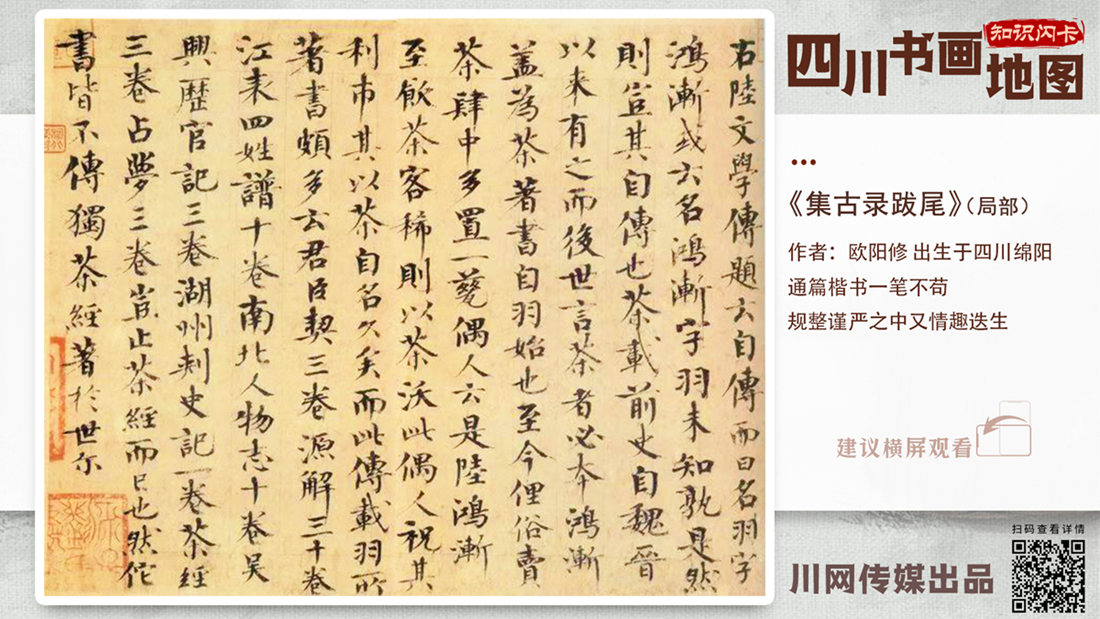 右陸文學傳題云自傳而曰名羽字
鴻漸或云名鴻漸字羽未知孰是然
則豈其自傳也茶載前史自魏晉
以来有之而後世言茶者必本鴻漸
盖為茶著書自羽始也至今俚俗賣
茶肆中多置一甆偶人云是陸鴻漸
至飲茶客稀則以茶沃此偶人祝其
利市其以茶自名久矣而此傳載羽所
著書頗多云君臣契三卷源解三十卷
江表四姓譜十卷南北人物志十卷吳
興歷官記三卷湖州刺史記一卷茶經
三卷占夢三卷豈止茶經而已也然佗
書皆不傳獨茶經著於世尔
四川书画地图
知识闪卡
《集古录跋尾》（局部）
作者：欧阳修 出生于四川绵阳
通篇楷书一笔不苟
规整谨严之中又情趣迭生
建议横屏观看
扫码查看详情
川网传媒出品